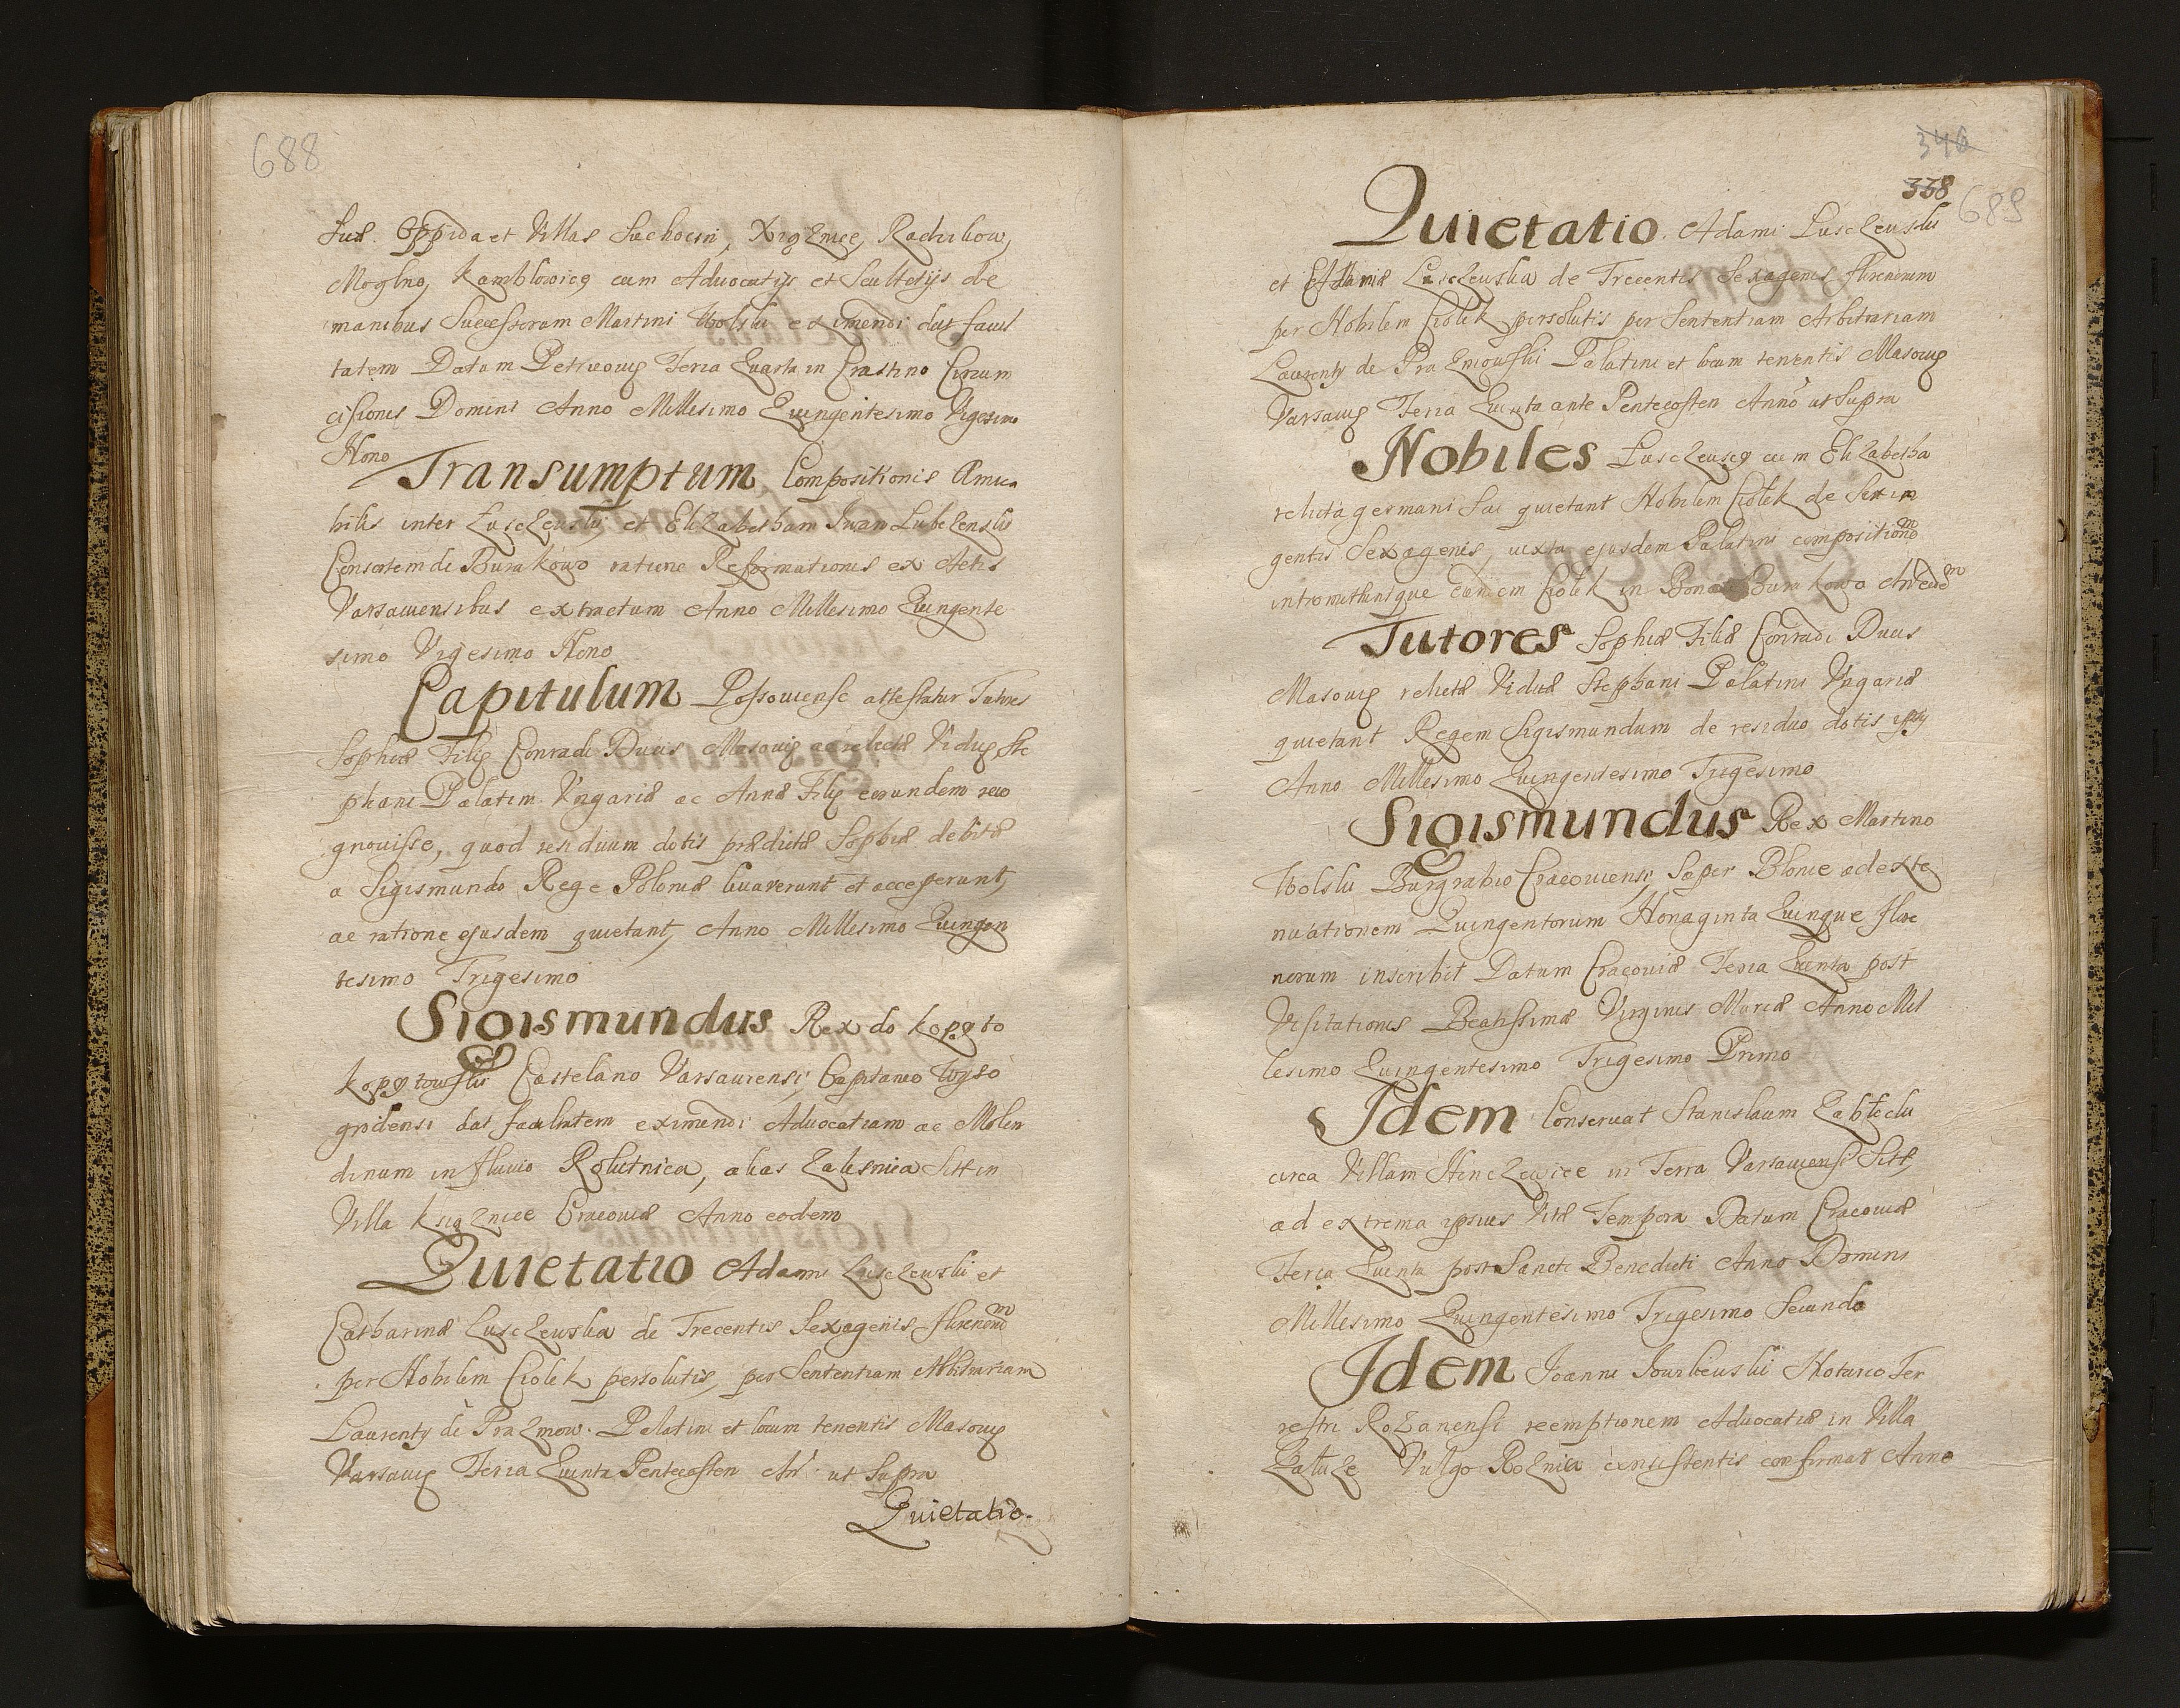 688
suæ. Oppida et Villas Sochocin, Xiążnice, Raduikow,
Moglno, Kamblowicę cum Advocatijs et Scultetijs de
manibus Successorum Martini Wolski eximendi dat facul
tatem Datum Petricoviæ Feria Quarta in Crastino Circum
cisionis Domini Anno Millesimo Quingentesimo Vigesimo
Nono
Transumptum Compositionis Amica
bilis inter Luszczewski et Elizabetham Iwan Lubelzenski
Consortem de Burakowo ratione Reformationis ex Actis
Varsaviensibus extractum Anno Millesimo Quingente
simo Vigesimo Nono
Capitulum Possoviense attestatur Tutores
Sophiæ Filię Conradi Ducis Masovię ac relictæ Viduę Ste
phani Palatini Ungariæ ac Annæ Filię eorundem reco
gnovisse, quod residuum dotis prædictæ Sophiæ debitæ
a Sigismundo Rege Poloniæ levaverunt et acceperunt,
ac ratione ejusdem quietant, Anno Millesimo Quingen
tesimo Trigesimo
Sigismundus Rex do kopyto
kopytowski Castelano Varsaviensi, Capitaneo Wyso
grodensi dat facultatem eximendi Advocatiam ac Molen
dinum in fluvio Rokitnica, alias Zalesnica Sitt in
Villa Książnice Cracoviæ Anno eodem
Quietatio Adami Luszczewski et
Catharinæ Luszczewska de Trecentis Sexagenis florenorũm
per Nobilem Ciolek persolutis, per Sententiam Arbitrariam
Laurenty de Prazmow. Palatini et locum tenentis Masovię
Varsavię Feria Quinta Pentecosten An: ut Supra
Quietatio.
346
338
689
Quietatio. Adami Luszczewski
et Annæ Luszczewska de Trecentis Sexagenis florenorum
per Nobilem Ciolek persolutis per Sententiam Arbitrariam
Laurenty de Prazmowski Palatini et locum tenentis Masovię
Varsavię Feria Quinta ante Pentecosten Anno ut Supra
Nobiles Luszczewscy cum Elizabetha
relicta germani sui quietant Nobilem Ciołek de Sexin
gentis Sexagenis, iuxta ejusdem Palatini compositionem
intromittuntque eundem Ciolek in Bona Burakowo
Tutores Sophiæ Filiæ Conradi Ducis
Masovię relictæ Viduæ Stephani Palatini Vngariæ
quietant Regem Sigismundum de residuo dotis ipsius
Anno Millesimo Quingentesimo Trigesimo
Sigismundus Rex Martino
Wolski Burgrabio Cracoviensi, Super Blonie ad exte
nuationem Quingentorum Nonaginta Quinque flore
norum inscribit Datum Cracoviæ Feria Quinta post
Visitationis Beatissimæ Virginis Mariæ Anno Mil
lesimo Quingentesimo Trigesimo Primo
Idem Conservat Stanislaum Zabłocki
circa Villam Hinczewice in Terra Varsaviensi Sitt,
ad extrema ipsius Vitæ Tempora Datum Cracoviæ
Feria Quinta post Sancti Benedicti Anno Domini
Millesimo Quingentesimo Trigesimo Secundo
Idem Joanni Notario Ter
restri Rożanensi reemptionem Advocatiæ in Villa
Załuże Vulgo Roznica existentis confirmat Anno